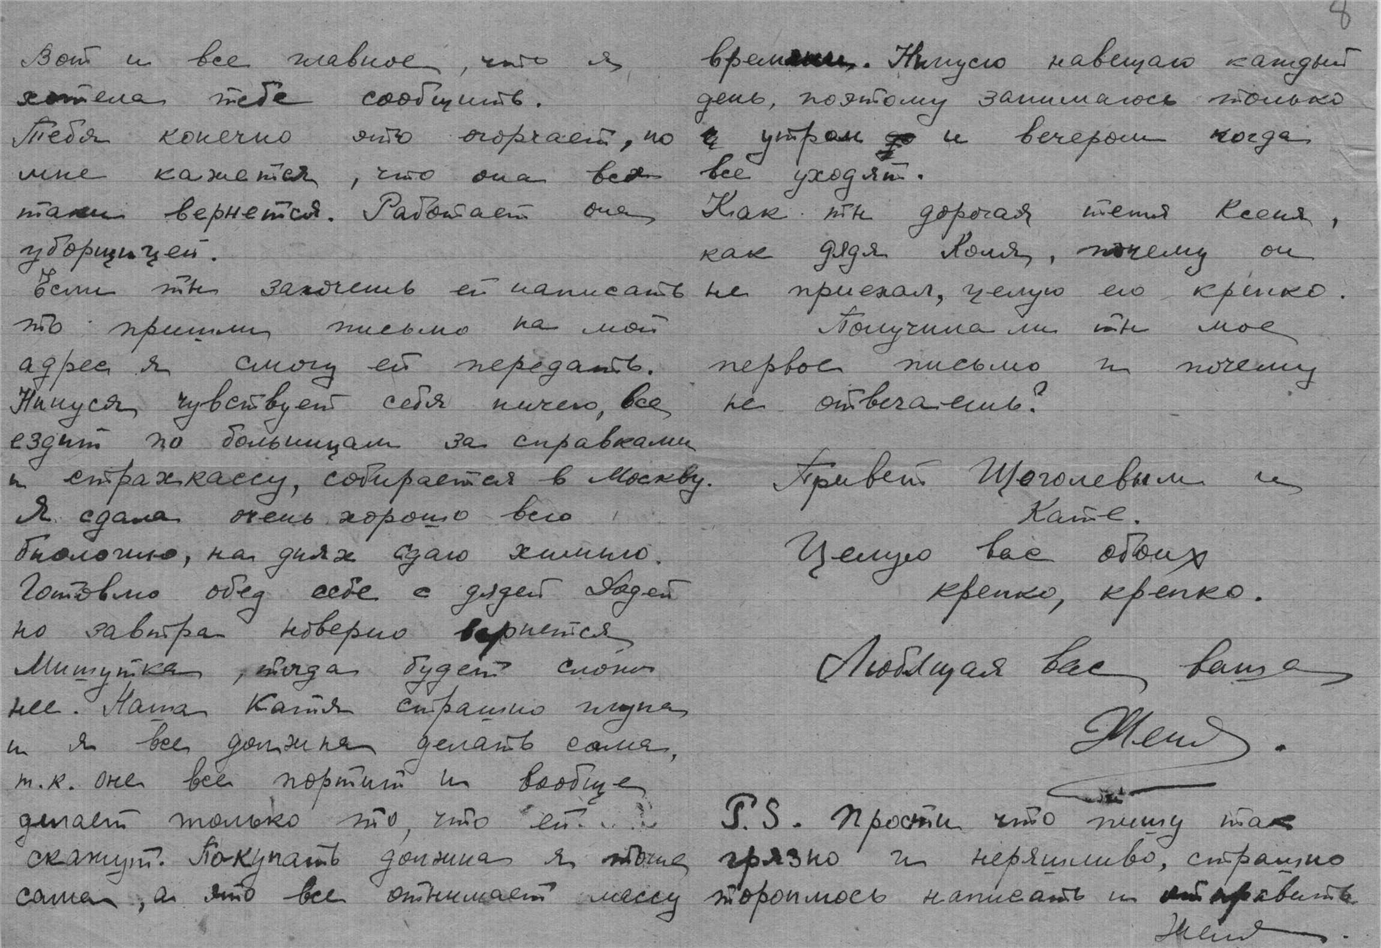 8
Вот и все главное, что я
хотела тебе сообщить.
Тебя конечно это огорчает, но
мне кажется, что она все
таки вернется. Работает она
уборщицей.
Если ты захочешь ей написать
то пришли письмо на мой
адрес я смогу ей передать.
Нинуся чувствует себя ничего, все
ездит по больницам за справками
и страхкассу, собирается в Москву.
Я сдала очень хорошо всю
биологию, на днях сдаю химию.
Готовлю обед себе с дядей Адей
но завтра наверно вернется
Мишутка, тогда будет слож
нее. Наша Катя страшно глупа
и я все должна делать сама,
т.к. она все портит и вообще
делает только то, что ей
скажут. Покупать должна я тоже
сама, а это все отнимает массу
времени. Нинусю навещаю каждый
день, поэтому занимаюсь только
утром и вечером когда
все уходят.
Как ты дорогая тетя Ксеня,
как дядя Коля, почему он
не приехал, целую его крепко.
Получила ли ты мое
первое письмо и почему
не отвечаешь?
Привет Щоголевым и
Кате.
Целую вас обоих
крепко, крепко.
Любящая вас ваша
Женя.
P.S. Прости что пишу так
грязно и неряшливо, страшно
тороплюсь написать и отправить
Женя.